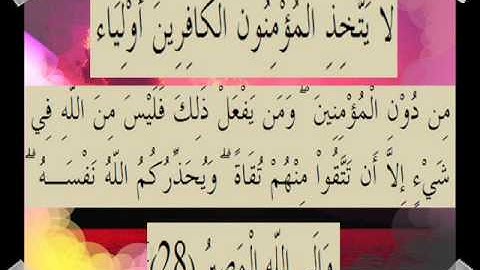 لَا يَتَّخِذِ الْمُؤْمِنُونَ الْكَافِرِينَ أَوْلِيَاء
مِن دُوْنِ الْمُؤْمِنِينَ ۖ وَمَن يَفْعَلْ ذَلِكَ فَلَيْسَ مِنَ اللّهِ فِي
شَيْءٍ إِلاَّ أَن تَتَّقُواْ مِنْهُمْ تُقَاةً ۗ وَيُحَذِّرُكُمُ اللّهُ نَفْسَـــهُ ۗ
وَإِلَى اللّهِ الْمَصِيرُ (28)